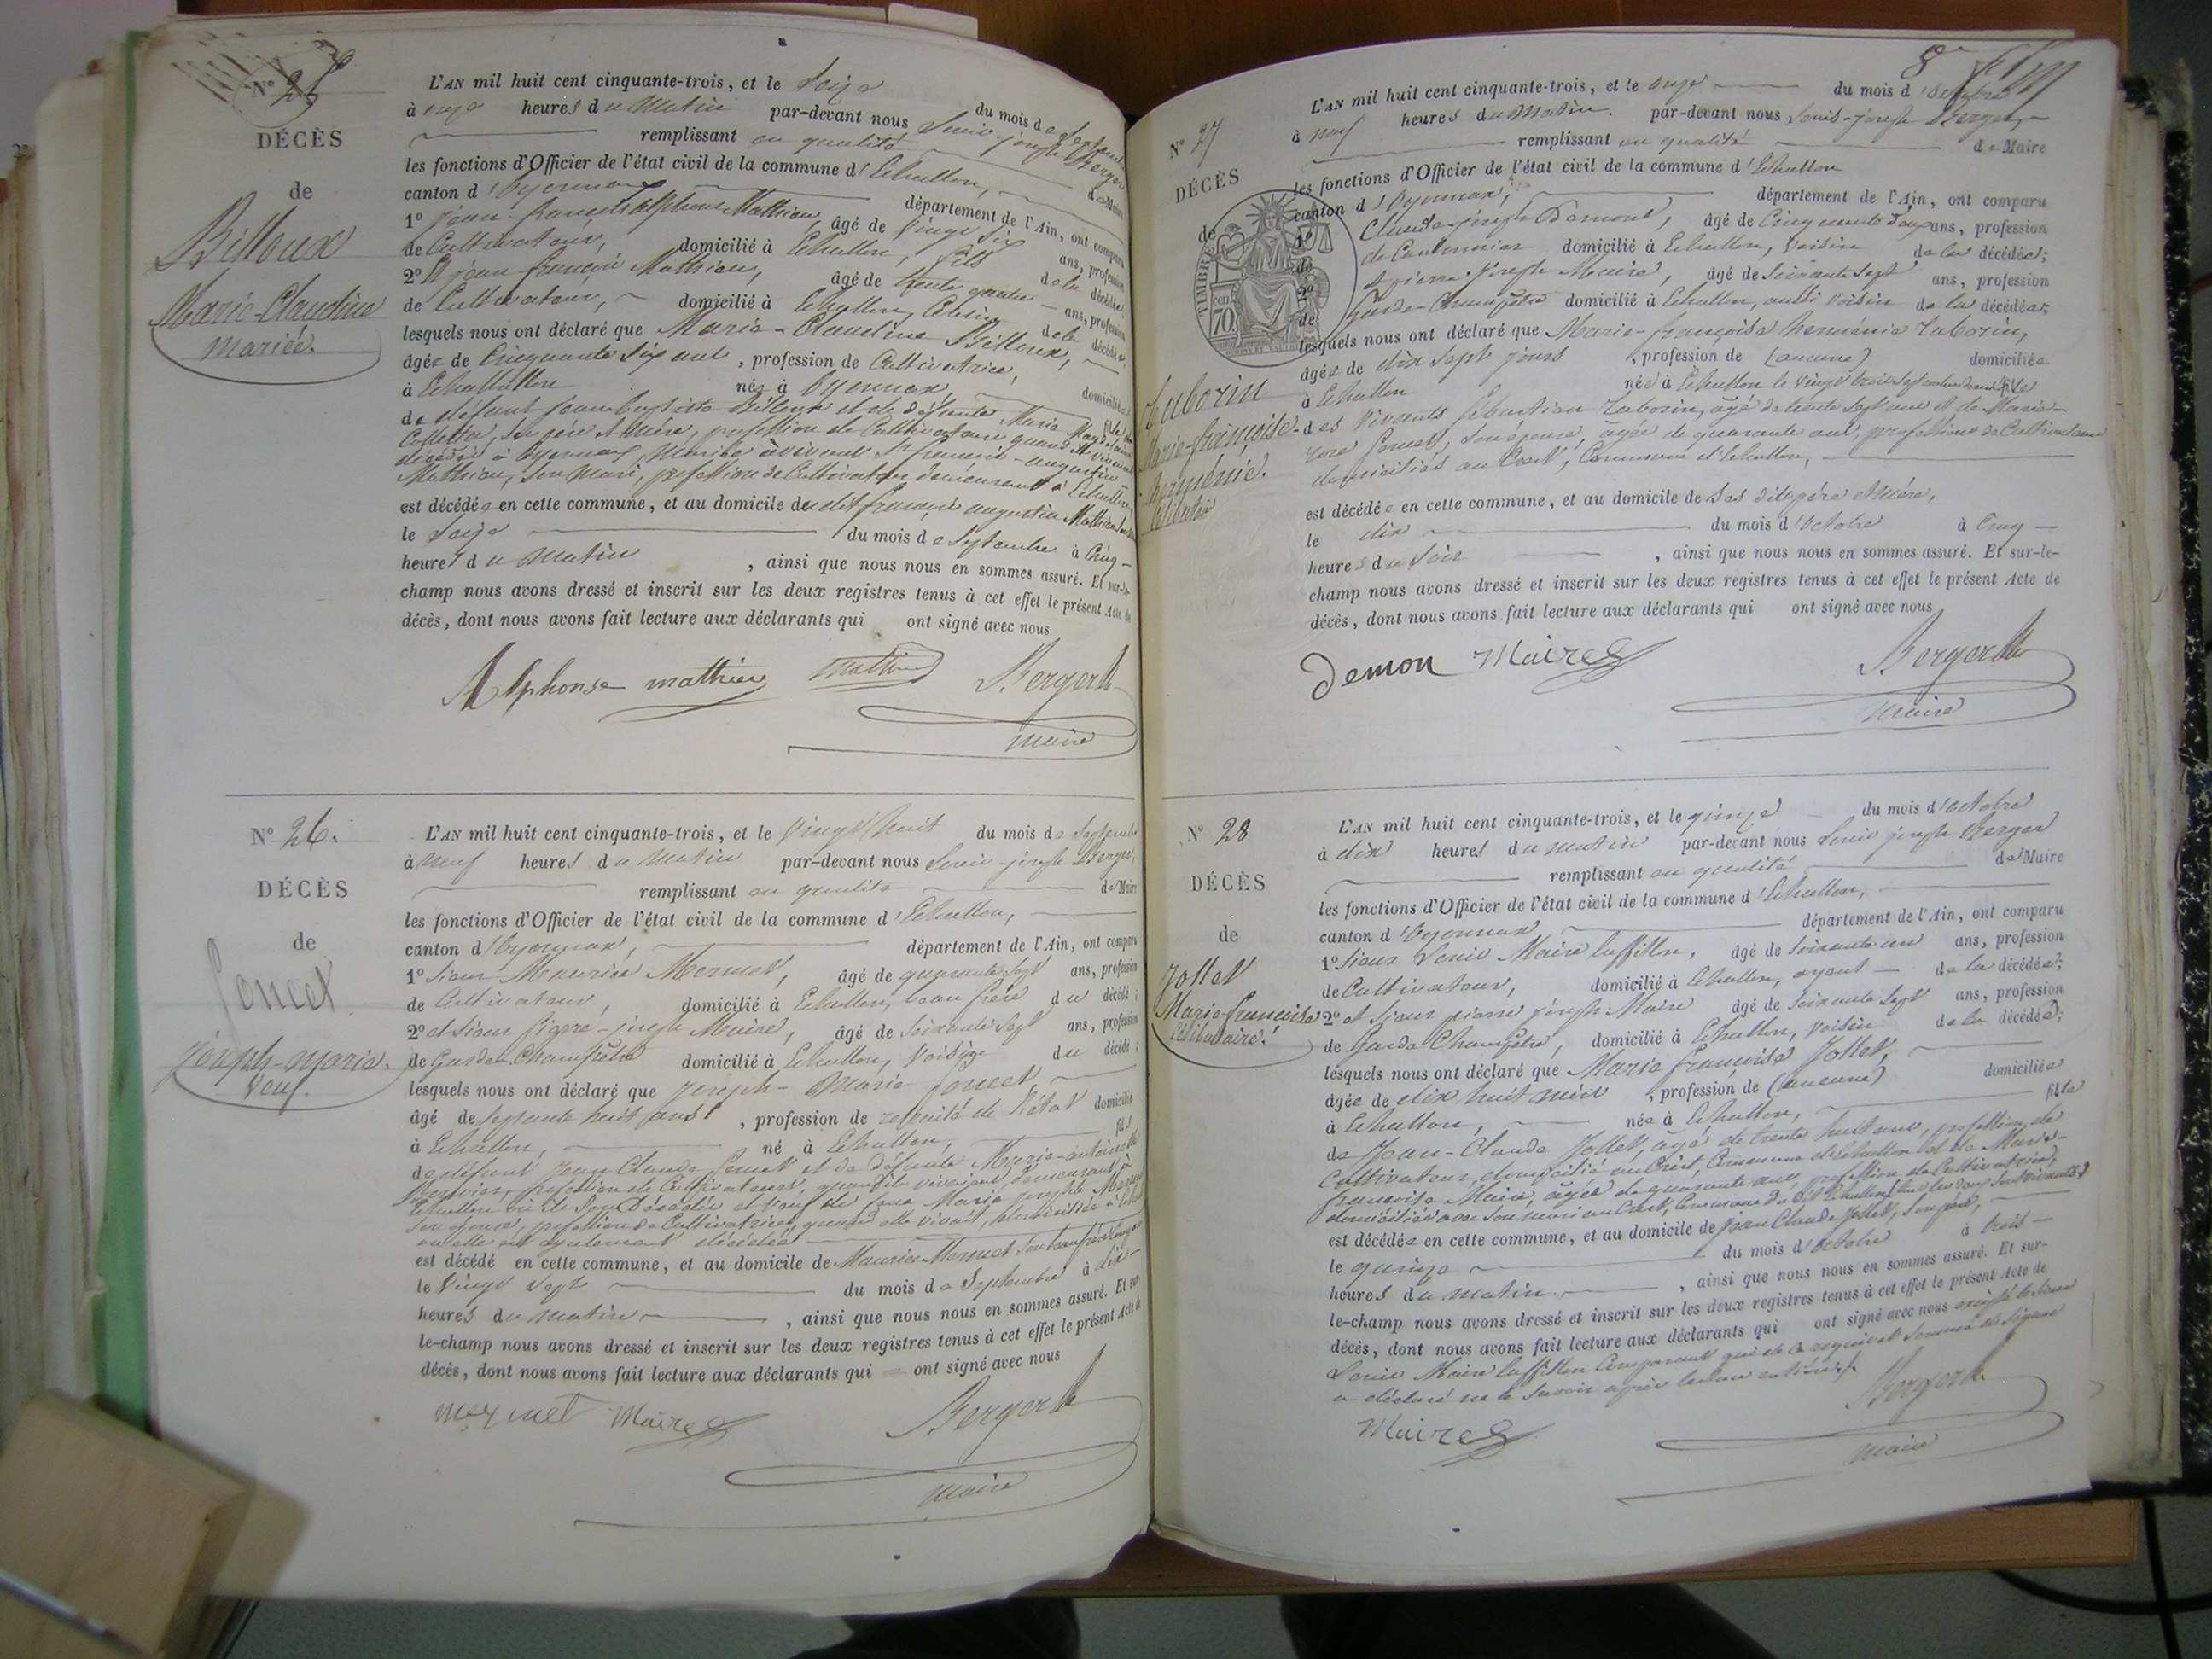 N° 25
DÉCÈS
de
Billoux
Marie-Claudine
mariée.
L'AN mil huit cent cinquante-trois, et le Seize du mois de Septembre
à onze heures du Matin par-devant nous Louis-joseph Berger
remplissant en qualité de Maire
les fonctions d'Officier de l'état civil de la commune d'Echallon,
canton d'Oyonnax département de l'Ain, ont comparu
1° jean-françois alphonse Mathieu, âgé de vingt six ans, profession
de Cultivateur, domicilié à Echallon, fils de la décédée
2° Et jean françois Mathieu, âgé de trente quatre ans, profession
de Cultivateur, domicilié à Echallon, de la décédée
lesquels nous ont déclaré que Marie-Claudine Billoux,
âgée de Cinquante six ans, profession de Cultivatrice, domiciliée
à Echallon née à Oyonnax, fille
de défunt jean baptiste Billoux et de défunte Marie
son père et Mère, profession de Cultivateurs quand
décédés à Oyonnax, Mariée à vivant françois-augustin
Mathieu, son Mari, profession de Cultivateur demeurant à Echallon
est décédée en cette commune, et au domicile du dit françois augustin Mathieu
le Seize du mois de Septembre à Cinq
heures du Matin, ainsi que nous nous en sommes assuré. Et sur-le-
champ nous avons dressé et inscrit sur les deux registres tenus à cet effet le présent Acte de
décès, dont nous avons fait lecture aux déclarants qui ont signé avec nous
Alphonse mathieu Mathieu Berger
Maire
N° 26.
DÉCÈS
de
Poncet
joseph-marie.
Veuf.
L'AN mil huit cent cinquante-trois, et le Vingt huit du mois de Septembre
à neuf heures du Matin par-devant nous Louis-joseph Berger,
remplissant en qualité de Maire
les fonctions d'Officier de l'état civil de la commune d'Echallon,
canton d'Oyonnax, département de l'Ain, ont comparu
1° Sieur Maurice Mermet, âgé de quarante sept ans, profession
de Cultivateur, domicilié à Echallon, beau frère du décédé;
2° et Sieur pierre-joseph Maire, âgé de Soixante sept ans, profession
de Garde Champêtre domicilié à Echallon, Voisin du décédé;
lesquels nous ont déclaré que joseph-Marie Poncet
âgé de Septante huit ans, profession de retraité de l'état domicilié
à Echallon, né à Echallon, fils
de défunt jean Claude Poncet et de défunte Marie-antoinette
profession de Cultivateurs, quand ils vivaient demeurant à
Echallon où ils sont Décédés et veuf de Marie josephte
son épouse, profession de Cultivatrice, quand elle vivait, domiciliée à
où elle est également décédée
est décédé en cette commune, et au domicile de Maurice Mermet son beau frère
le Vingt Sept du mois de Septembre à dix
heures du matin, ainsi que nous nous en sommes assuré. Et sur
le-champ nous avons dressé et inscrit sur les deux registres tenus à cet effet le présent Acte de
décès, dont nous avons fait lecture aux déclarants qui ont signé avec nous
mermet Maire Berger
Maire
8
N° 27
DÉCÈS
de
TIMBRE
70
Taborin
Marie-françoise-
herménie.
Célibataire
L'AN mil huit cent cinquante-trois, et le onze du mois d'Octobre
à neuf heures du Matin. par-devant nous Louis-joseph Berger,
remplissant en qualité de Maire
les fonctions d'Officier de l'état civil de la commune d'Echallon
canton d'Oyonnax, département de l'Ain, ont comparu
1° Claude-joseph Demont, âgé de Cinquante ans, profession
de Cantonnier domicilié à Echallon, Voisin de la décédée;
2° pierre joseph Maire, âgé de Soixante sept ans, profession
de Garde-Champêtre domicilié à Echallon, aussi Voisin de la décédée;
lesquels nous ont déclaré que Marie-françoise herménie Taborin,
âgée de dix sept jours, profession de (aucune) domiciliée
à Echallon née à Echallon le vingt trois Septembre fille
des Vivants Sébastien Taborin, âgé de trente Sept ans et de Marie-
Poncet, Son épouse, âgée de quarante ans, profession de Cultivateurs
domiciliés au Crêt, Commune d'Echallon,
est décédée en cette commune, et au domicile de Ses dits père et Mère,
le dix du mois d'Octobre à Cinq
heures du Soir, ainsi que nous nous en sommes assuré. Et sur-le-
champ nous avons dressé et inscrit sur les deux registres tenus à cet effet le présent Acte de
décès, dont nous avons fait lecture aux déclarants qui ont signé avec nous
Demon Maire Berger
Maire
N° 28
DÉCÈS
de
Jollet
Marie-françoise
Célibataire.
L'AN mil huit cent cinquante-trois, et le quinze du mois d'Octobre
à dix heures du matin par-devant nous Louis joseph Berger
remplissant en qualité de Maire
les fonctions d'Officier de l'état civil de la commune d'Echallon,
canton d'Oyonnax département de l'Ain, ont comparu
1° Sieur Louis Maire laffillon, âgé de Soixante un ans, profession
de Cultivateur, domicilié à Echallon, ayeul de la décédée;
2° et Sieur pierre joseph-Maire âgé de Soixante Sept ans, profession
de Garde Champêtre, domicilié à Echallon, Voisin de la décédée;
lesquels nous ont déclaré que Marie françoise Jollet,
âgée de dix huit mois, profession de (aucune) domiciliée
à Echallon, née à Echallon, fille
de Jean-Claude Jollet, âgé de trente huit ans, profession de
Cultivateur, domicilié au Crêt, Commune d'Echallon et de Marie-
françoise Maire, âgée de quarante ans, profession de Cultivatrice,
domiciliée avec son mari au Crêt, Commune du dit Echallon, tous les deux
est décédée en cette commune, et au domicile de jean Claude Jollet, Son père,
le quinze du mois d'Octobre à trois
heures du matin, ainsi que nous nous en sommes assuré. Et sur-
le-champ nous avons dressé et inscrit sur les deux registres tenus à cet effet le présent Acte de
décès, dont nous avons fait lecture aux déclarants qui ont signé avec nous excepté le Sieur
Louis Maire laffillon Comparant qui de ce requis et Sommé de Signer
a déclaré ne le Savoir après lecture
Maire Berger
Maire